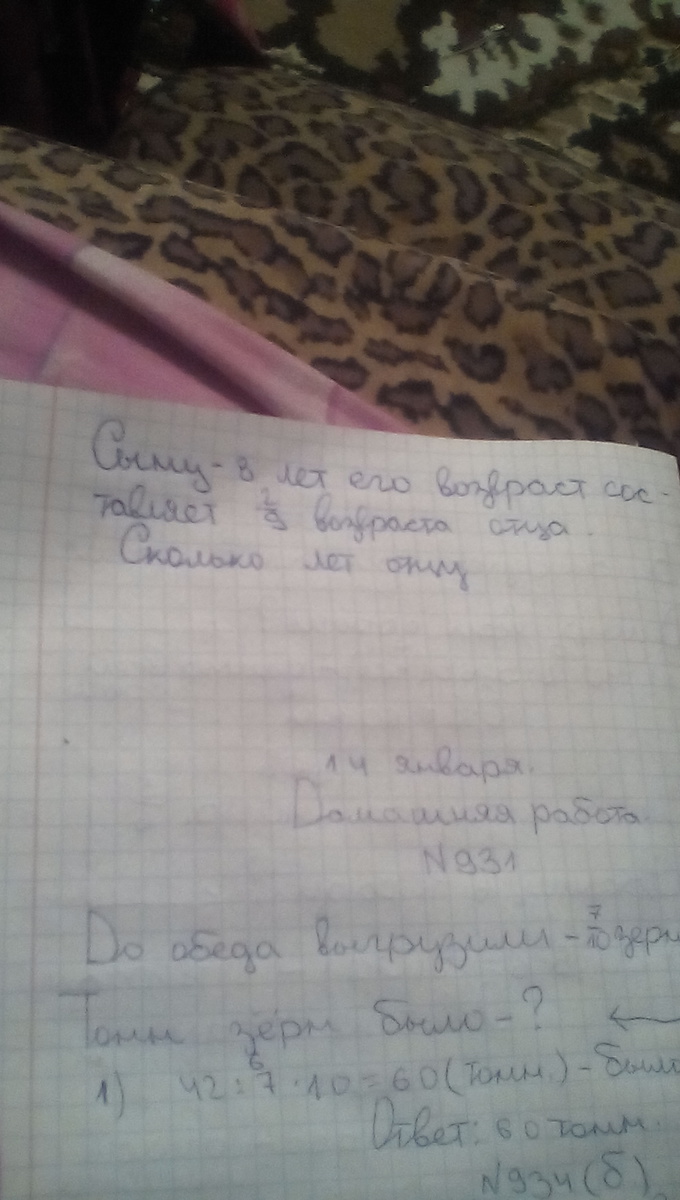 Сыну - 8 лет его возраст сос-
тавляет 2/9 возраста отца.
Сколько лет отцу
14 января.
Домашняя работа.
N931
До обеда выгрузили - 7/10 зерн
Тонн зерн было - ?
1) 42 : 7 · 10 = 60 (тонн.) - было
6
Ответ: 60 тонн.
N934 (б)